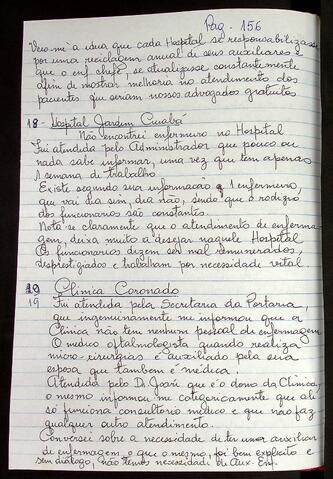 Pag. 156
Veio-me a idéia que cada Hospital se responsabilizasse
por uma reciclagem anual de seus auxiliares e
que o enf. chefe, se atualizasse constantemente
afim de mostrar melhoria no atendimento dos
pacientes que seriam nossos advogados gratuitos
18- Hospital Jardim Cuiabá
Não encontrei enfermeiro no Hospital
Fui atendida pelo Administrador que pouco ou
nada sabe informar, uma vez que tem apenas
1 semana de trabalho
Existe segundo sua informação 1 enfermeiro,
que vai dia sim, dia não, sendo que o rodízio
dos funcionários são constantes.
Nota-se claramente que o atendimento de enferma
gem, deixa muito a desejar naquele Hospital
Os funcionários dizem ser mal remunerados,
desprestigiados e trabalham por necessidade vital
19 Clínica Coronado
19 Fui atendida pela Secretaria da Portaria,
que ingenuinamente me informou que a
Clínica não tem nenhum pessoal de enfermagem
O médico oftalmologista quando realiza
micro-cirurgias é auxiliado pela sua
esposa que também é médica.
Atendida pelo Dr. que é o dono da Clínica,
o mesmo informou me categoricamente que ali
só funciona consultório médico e que não faz
qualquer outro atendimento.
Conversei sobre a necessidade de ter uma auxiliar
de enfermagem e que o mesmo, foi bem explícito e
sem diálogo, não temos necessidade de Aux. Enf.